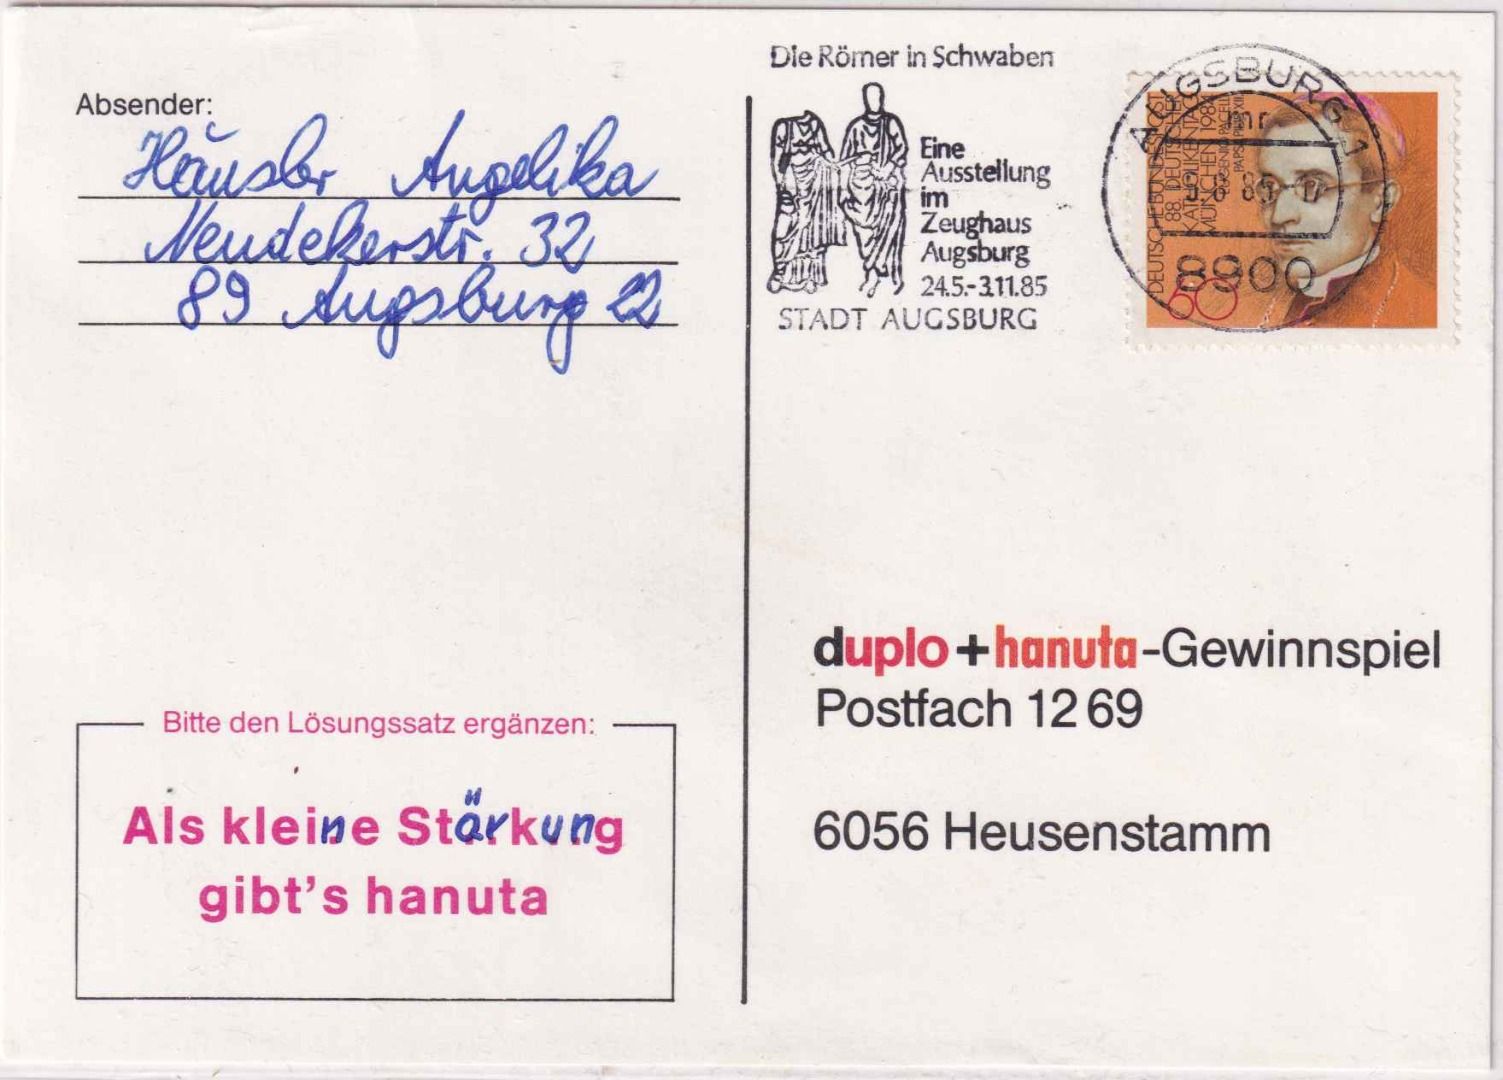 Absender:
Häusler Angelika
Neudekerstr. 32
89 Augsburg 22
Die Römer in Schwaben
Eine
Ausstellung
im
Zeughaus
Augsburg
24.5.-3.11.85
STADT AUGSBURG
AUGSBURG 1
8900
DEUTSCHE BUNDESPOST
88. DEUTSCHER
KATHOLIKENTAG
MÜNCHEN 1984
EUGENIO PACELLI
PAPST PIUS XII
60
duplo+hanuta-Gewinnspiel
Postfach 12 69
6056 Heusenstamm
Bitte den Lösungssatz ergänzen:
Als kleine Stärkung
gibt's hanuta